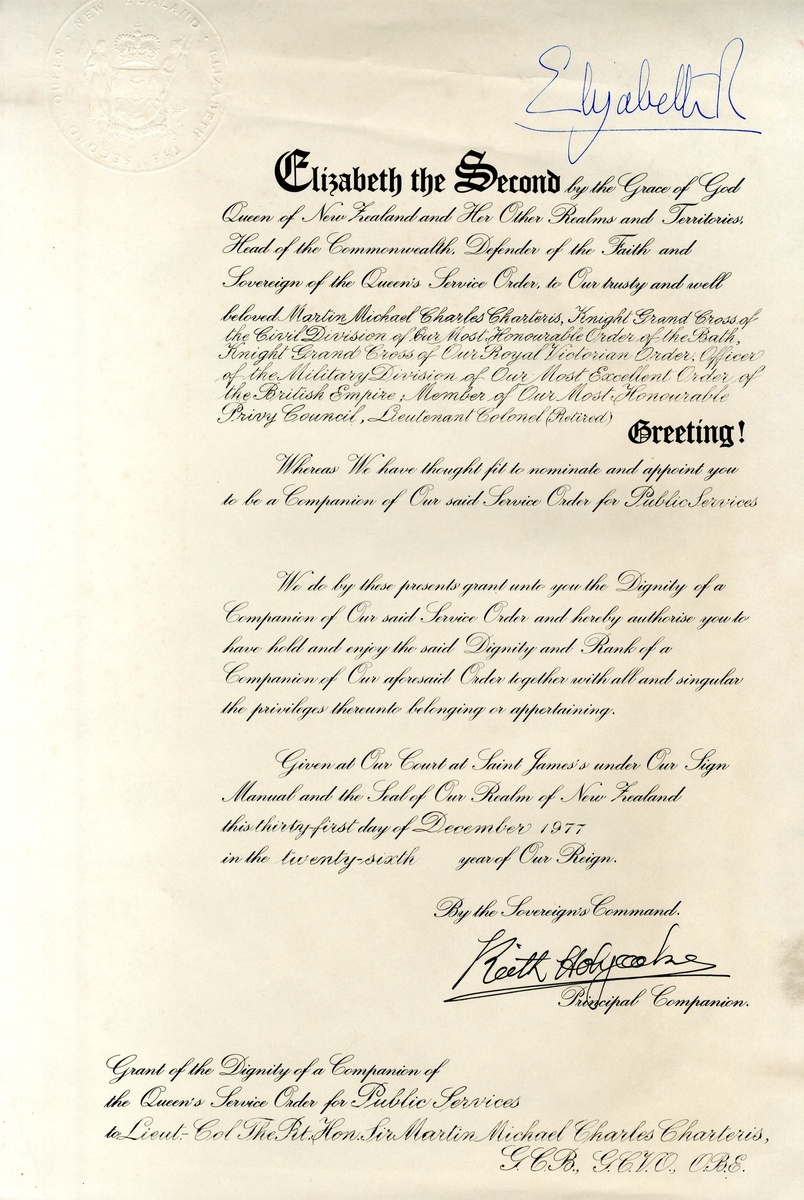 QUEEN · NEW ZEALAND · ELIZABETH THE SECOND
Elizabeth R
Elizabeth the Second by the Grace of God
Queen of New Zealand and Her Other Realms and Territories,
Head of the Commonwealth, Defender of the Faith and
Sovereign of the Queen's Service Order, to Our trusty and well
beloved Martin Michael Charles Charteris, Knight Grand Cross of
the Civil Division of Our Most Honourable Order of the Bath,
Knight Grand Cross of Our Royal Victorian Order, Officer
of the Military Division of Our Most Excellent Order of
the British Empire, Member of Our Most Honourable
Privy Council, Lieutenant Colonel (Retired)
Greeting!
Whereas We have thought fit to nominate and appoint you
to be a Companion of Our said Service Order for Public Services
We do by these presents grant unto you the Dignity of a
Companion of Our said Service Order and hereby authorise you to
have hold and enjoy the said Dignity and Rank of a
Companion of Our aforesaid Order together with all and singular
the privileges thereunto belonging or appertaining.
Given at Our Court at Saint James's under Our Sign
Manual and the Seal of Our Realm of New Zealand
this thirty-first day of December 1977
in the twenty-sixth year of Our Reign.
By the Sovereign's Command.
Keith Holyoake
Principal Companion.
Grant of the Dignity of a Companion of
the Queen's Service Order for Public Services
to Lieut-Col The Rt. Hon. Sir Martin Michael Charles Charteris,
G.C.B., G.C.V.O., O.B.E.